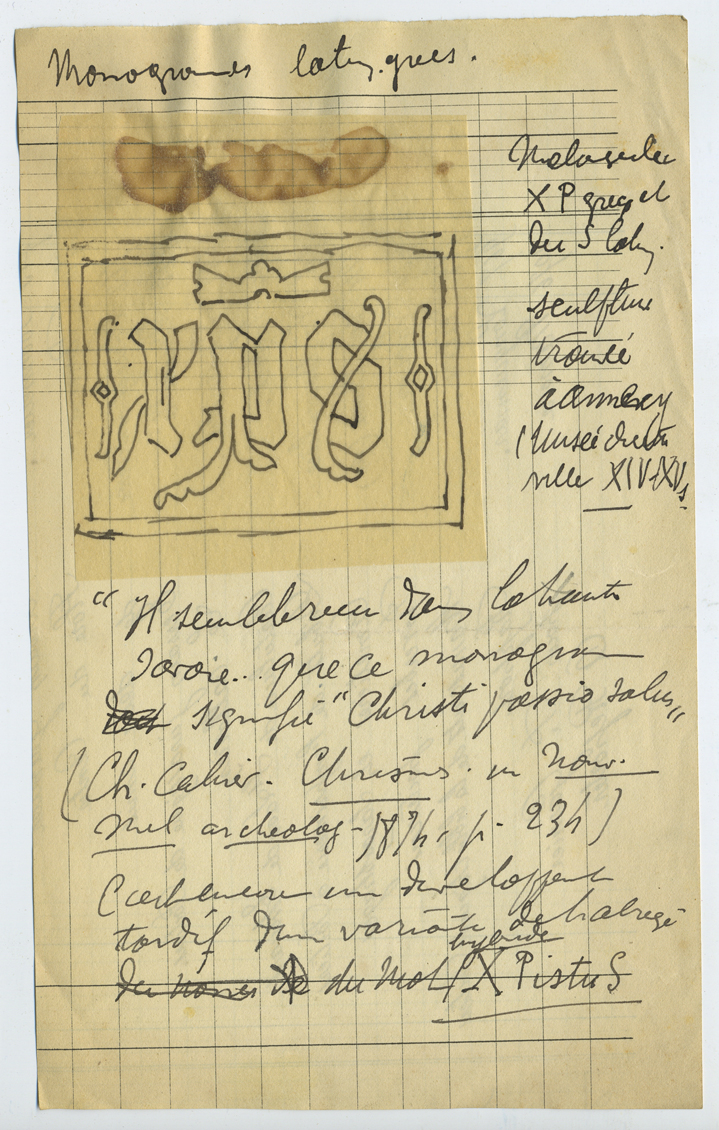 Monogrammes latin, grecs.
Melange des
X P grec et
du S latin.
sculpture
trouvée
à Annecy
(Musée de la
ville XIV-XVs
XPS
"Il semblerait dans la haute
Savoie.. que ce monogram
signifie "Christi passio salus"
(Ch. Cahier. Chrismes. in Nouv.
Mel archeolog - 1874, p. 234)
C'est encore un developpent
tardif d'un variante de l'abregé
hybride
du mot X PistuS